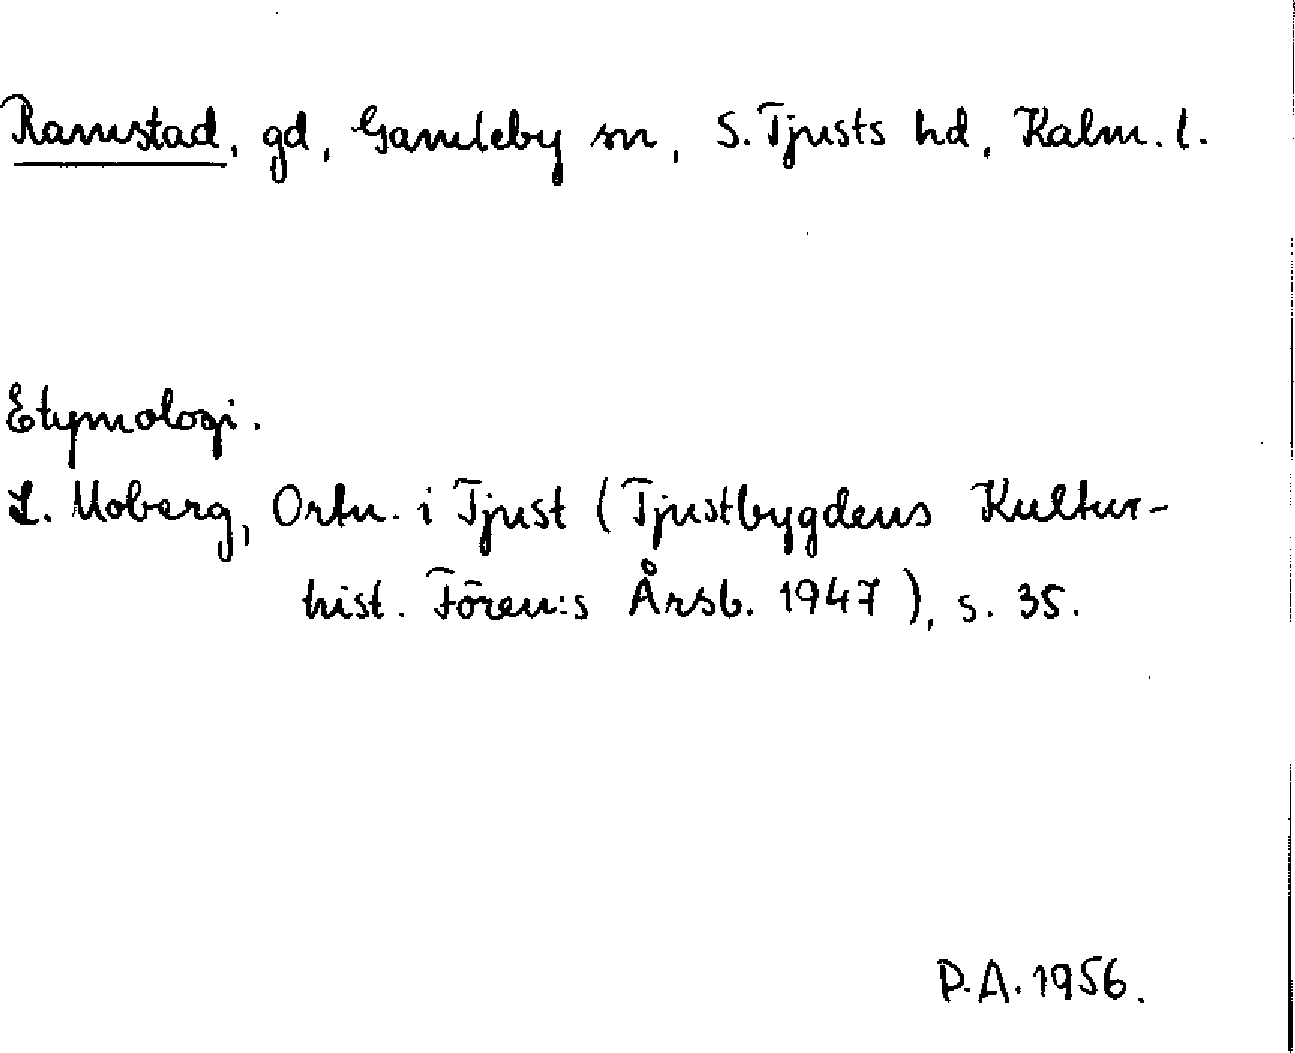 Ramstad, gd, Gamleby sn, S. Tjusts hd, Kalm. l.
Etymologi.
L. Moberg, Ortn. i Tjust (Tjustbygdens Kultur-
hist. Fören:s Årsb. 1947), s. 35.
P.A. 1956.